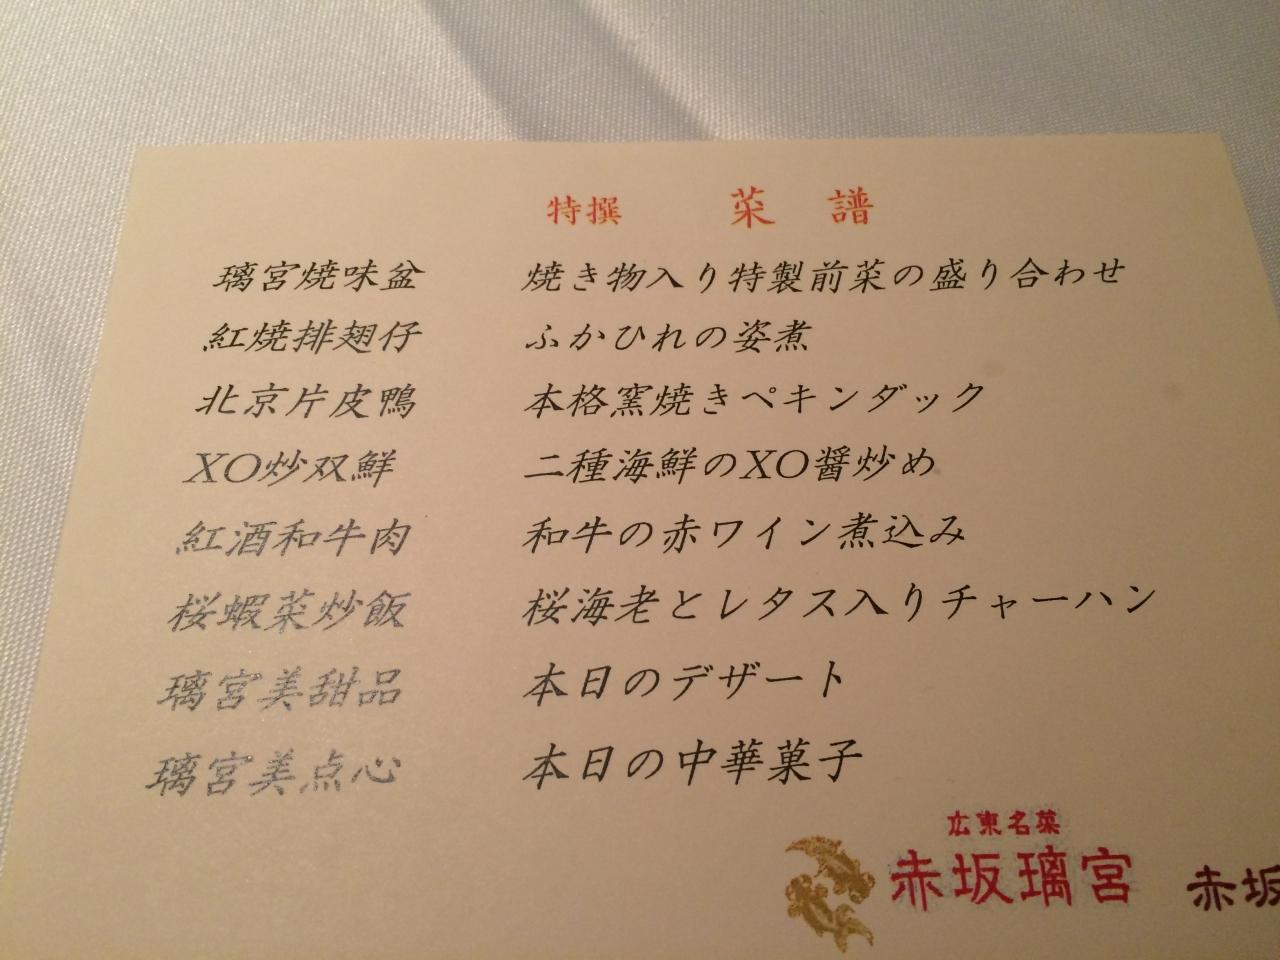 特撰 菜譜
璃宮焼味盆 焼き物入り特製前菜の盛り合わせ
紅焼排翅仔 ふかひれの姿煮
北京片皮鴨 本格窯焼きペキンダック
XO炒双鮮 二種海鮮のXO醤炒め
紅酒和牛肉 和牛の赤ワイン煮込み
桜蝦菜炒飯 桜海老とレタス入りチャーハン
璃宮美甜品 本日のデザート
璃宮美点心 本日の中華菓子
広東名菜
赤坂璃宮 赤坂